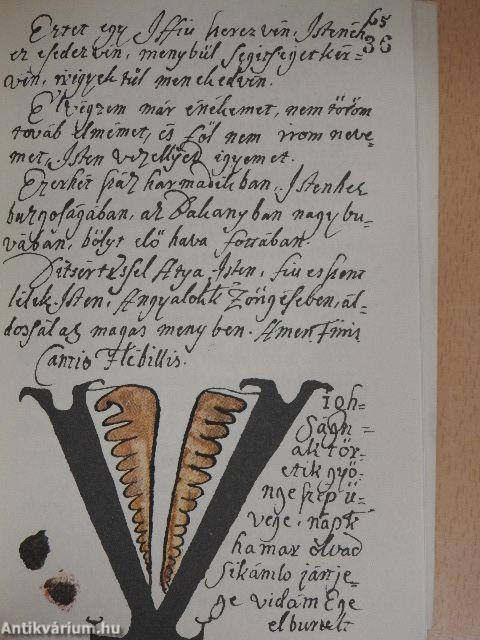 65
36
Ertet egy Iffiu herez vén, Istenéh
ez esedez vén, menybül segitséget kér=
vén, irigyek tül menekedvén.
El végzem már énekemet, nem töröm
továb elmémet, és föl nem irom neve=
met, Isten vezellyed ügyemet.
Ezerhét száz harmadikban, Istenhez
buzgoságában, az Bakany ban nagy bu=
vában, bölyt elő hava forrában.
Ditsértessel Atya Isten, fiu es szent
lélek Isten, Angyalokk Zöngéseben, ál=
dossál az magas meny ben. Amen Finis
Cantio Flebillis.
V
igh=
Ságn=
ak tör=
etik gyö=
nge szep ü=
vege, napk
hamar olvad
sikámlo jári je=
ge vidám Ege
el burult
Antikvárium.hu